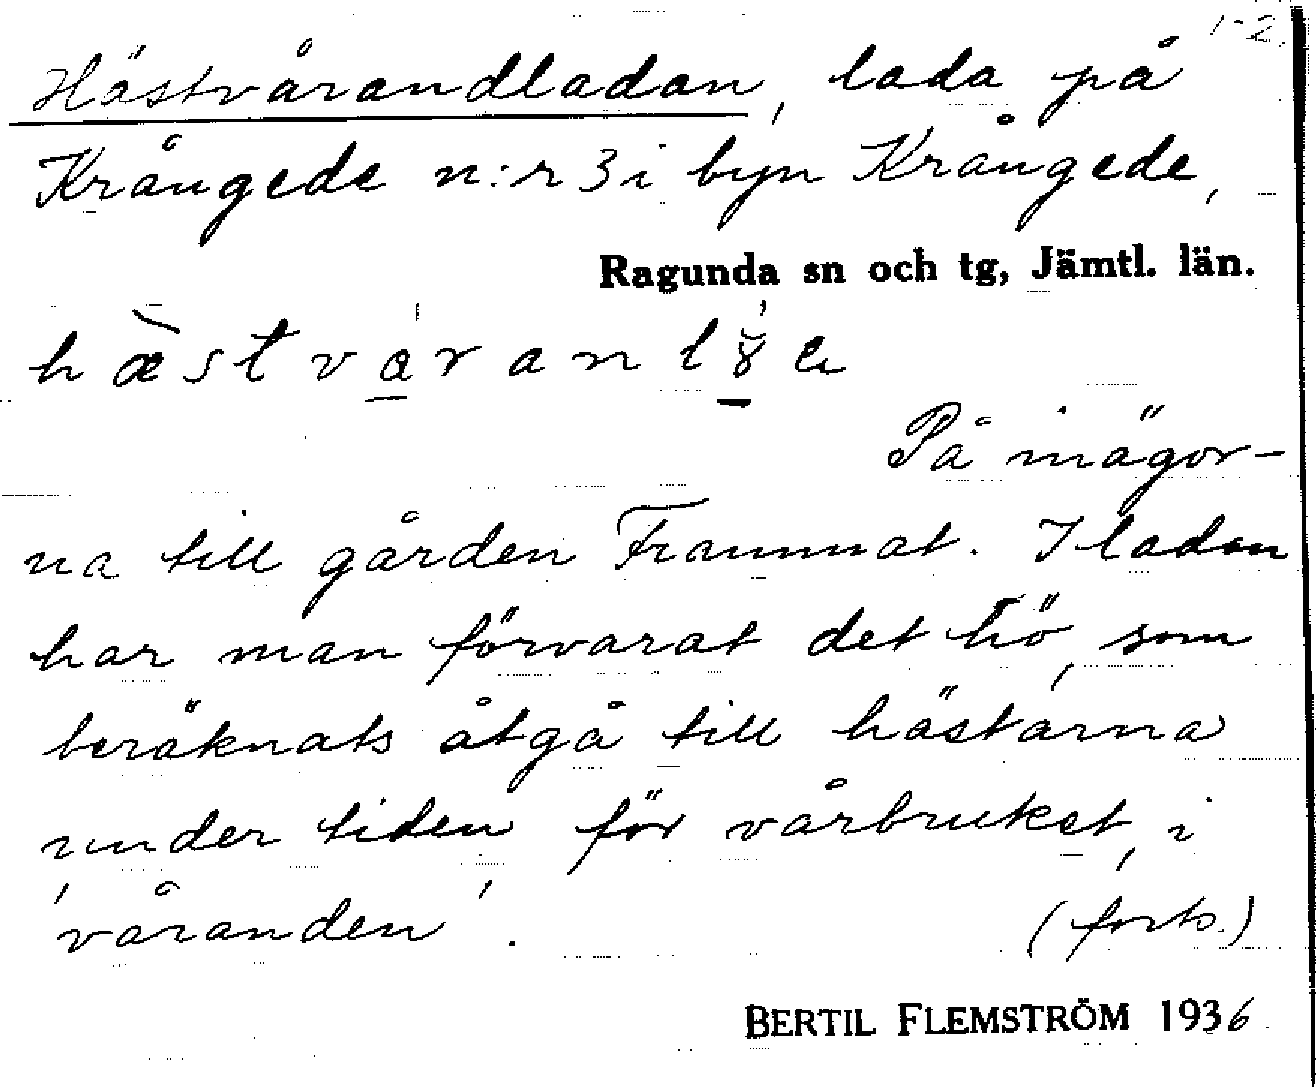 1-2.
Hästvårandladan, lada på
Krångede n:r 3 i byn Krångede,
Ragunda sn och tg, Jämtl. län.
På inägor-
na till gården Frammat. I ladan
har man förvarat det hö, som
beräknats åtgå till hästarna
under tiden för vårbruket, i
'våranden'. (forts.)
BERTIL FLEMSTRÖM 1936